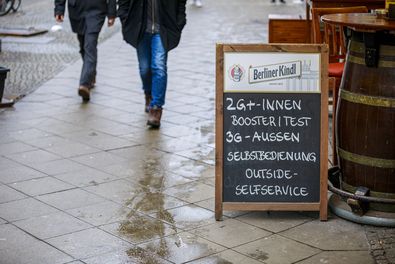 Berliner Kindl
2G+-INNEN
BOOSTER/TEST
3G-AUSSEN
SELBSTBEDIENUNG
OUTSIDE-
SELFSERVICE